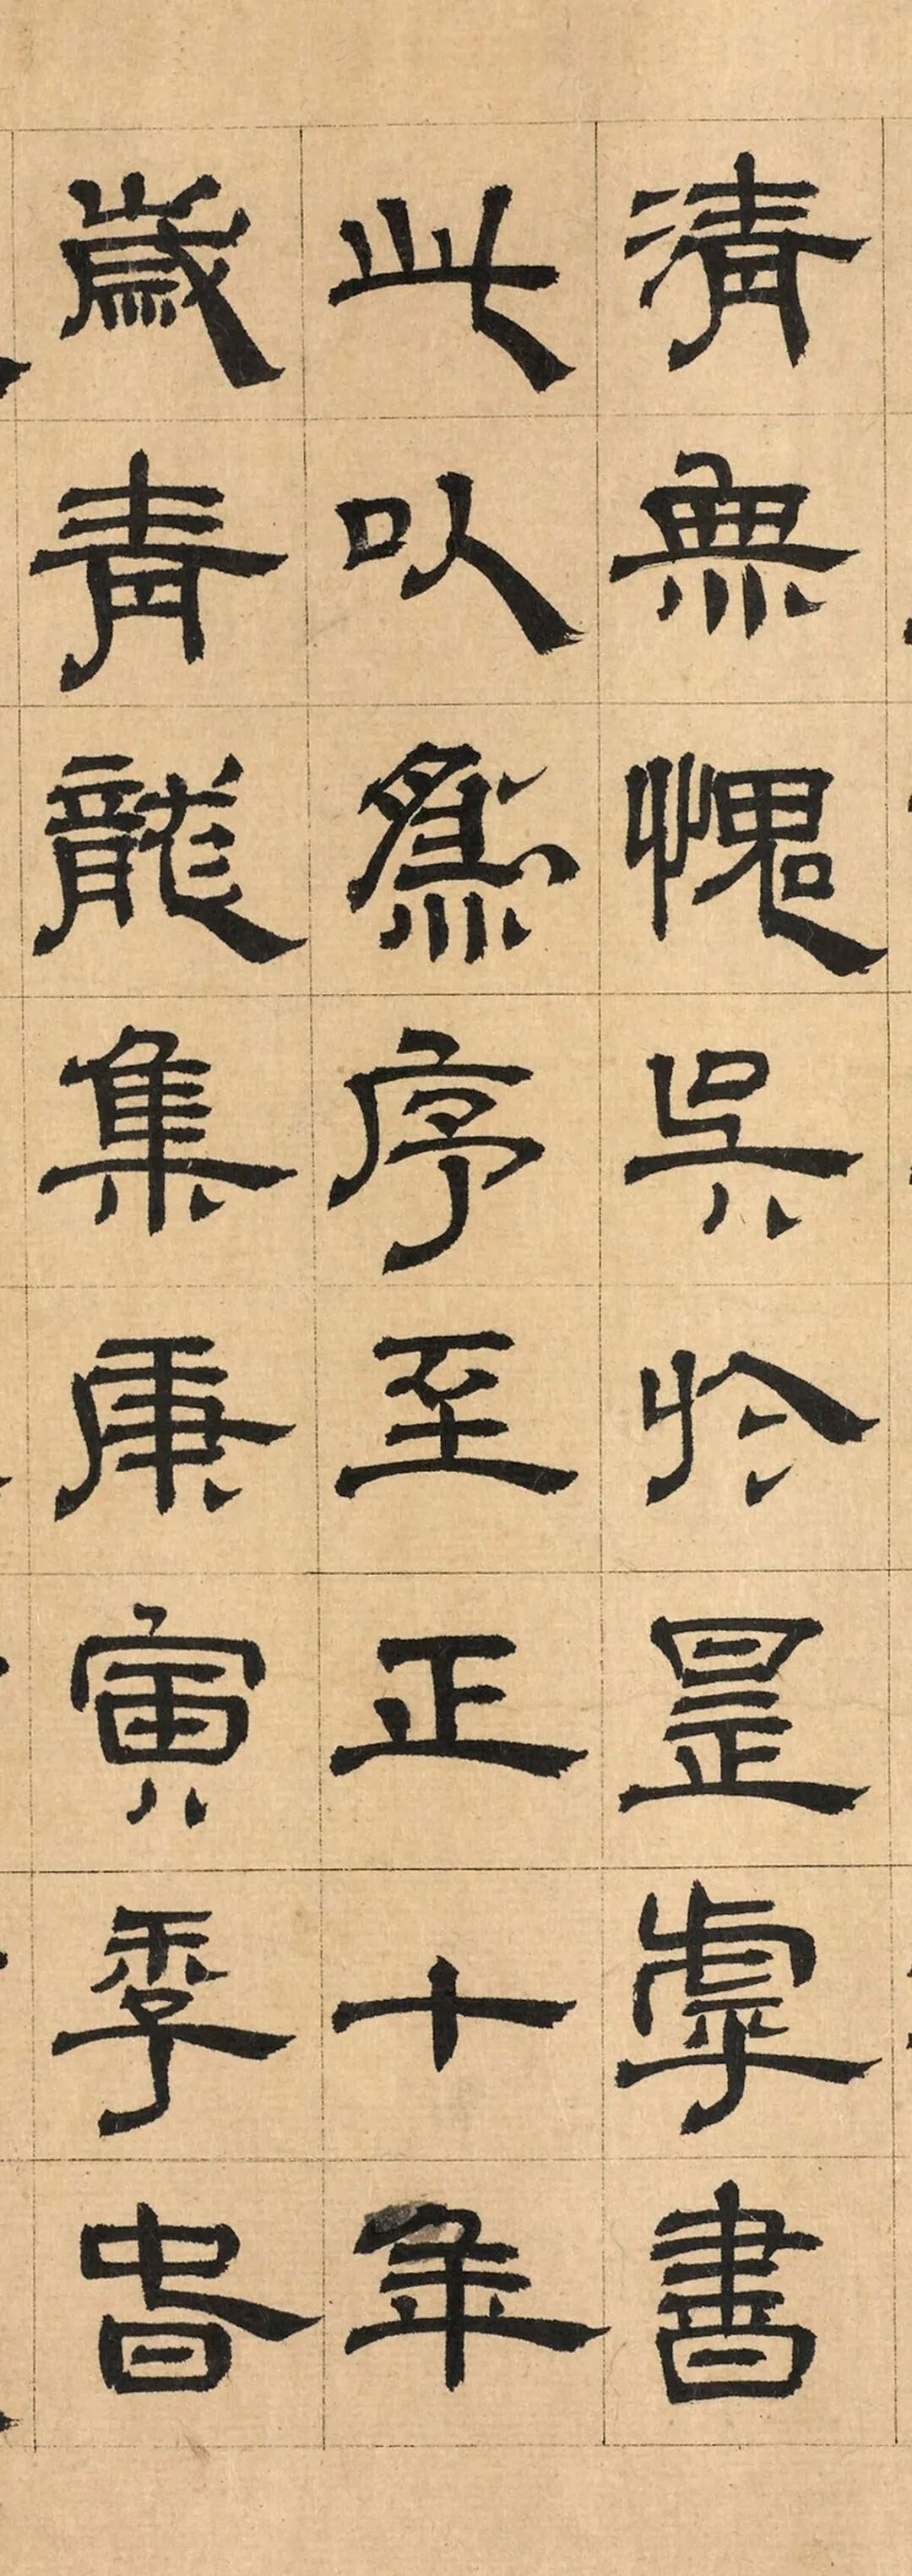 清無愧吳於是虖書
此以爲序至正十年
歲青龍集庚寅季旾